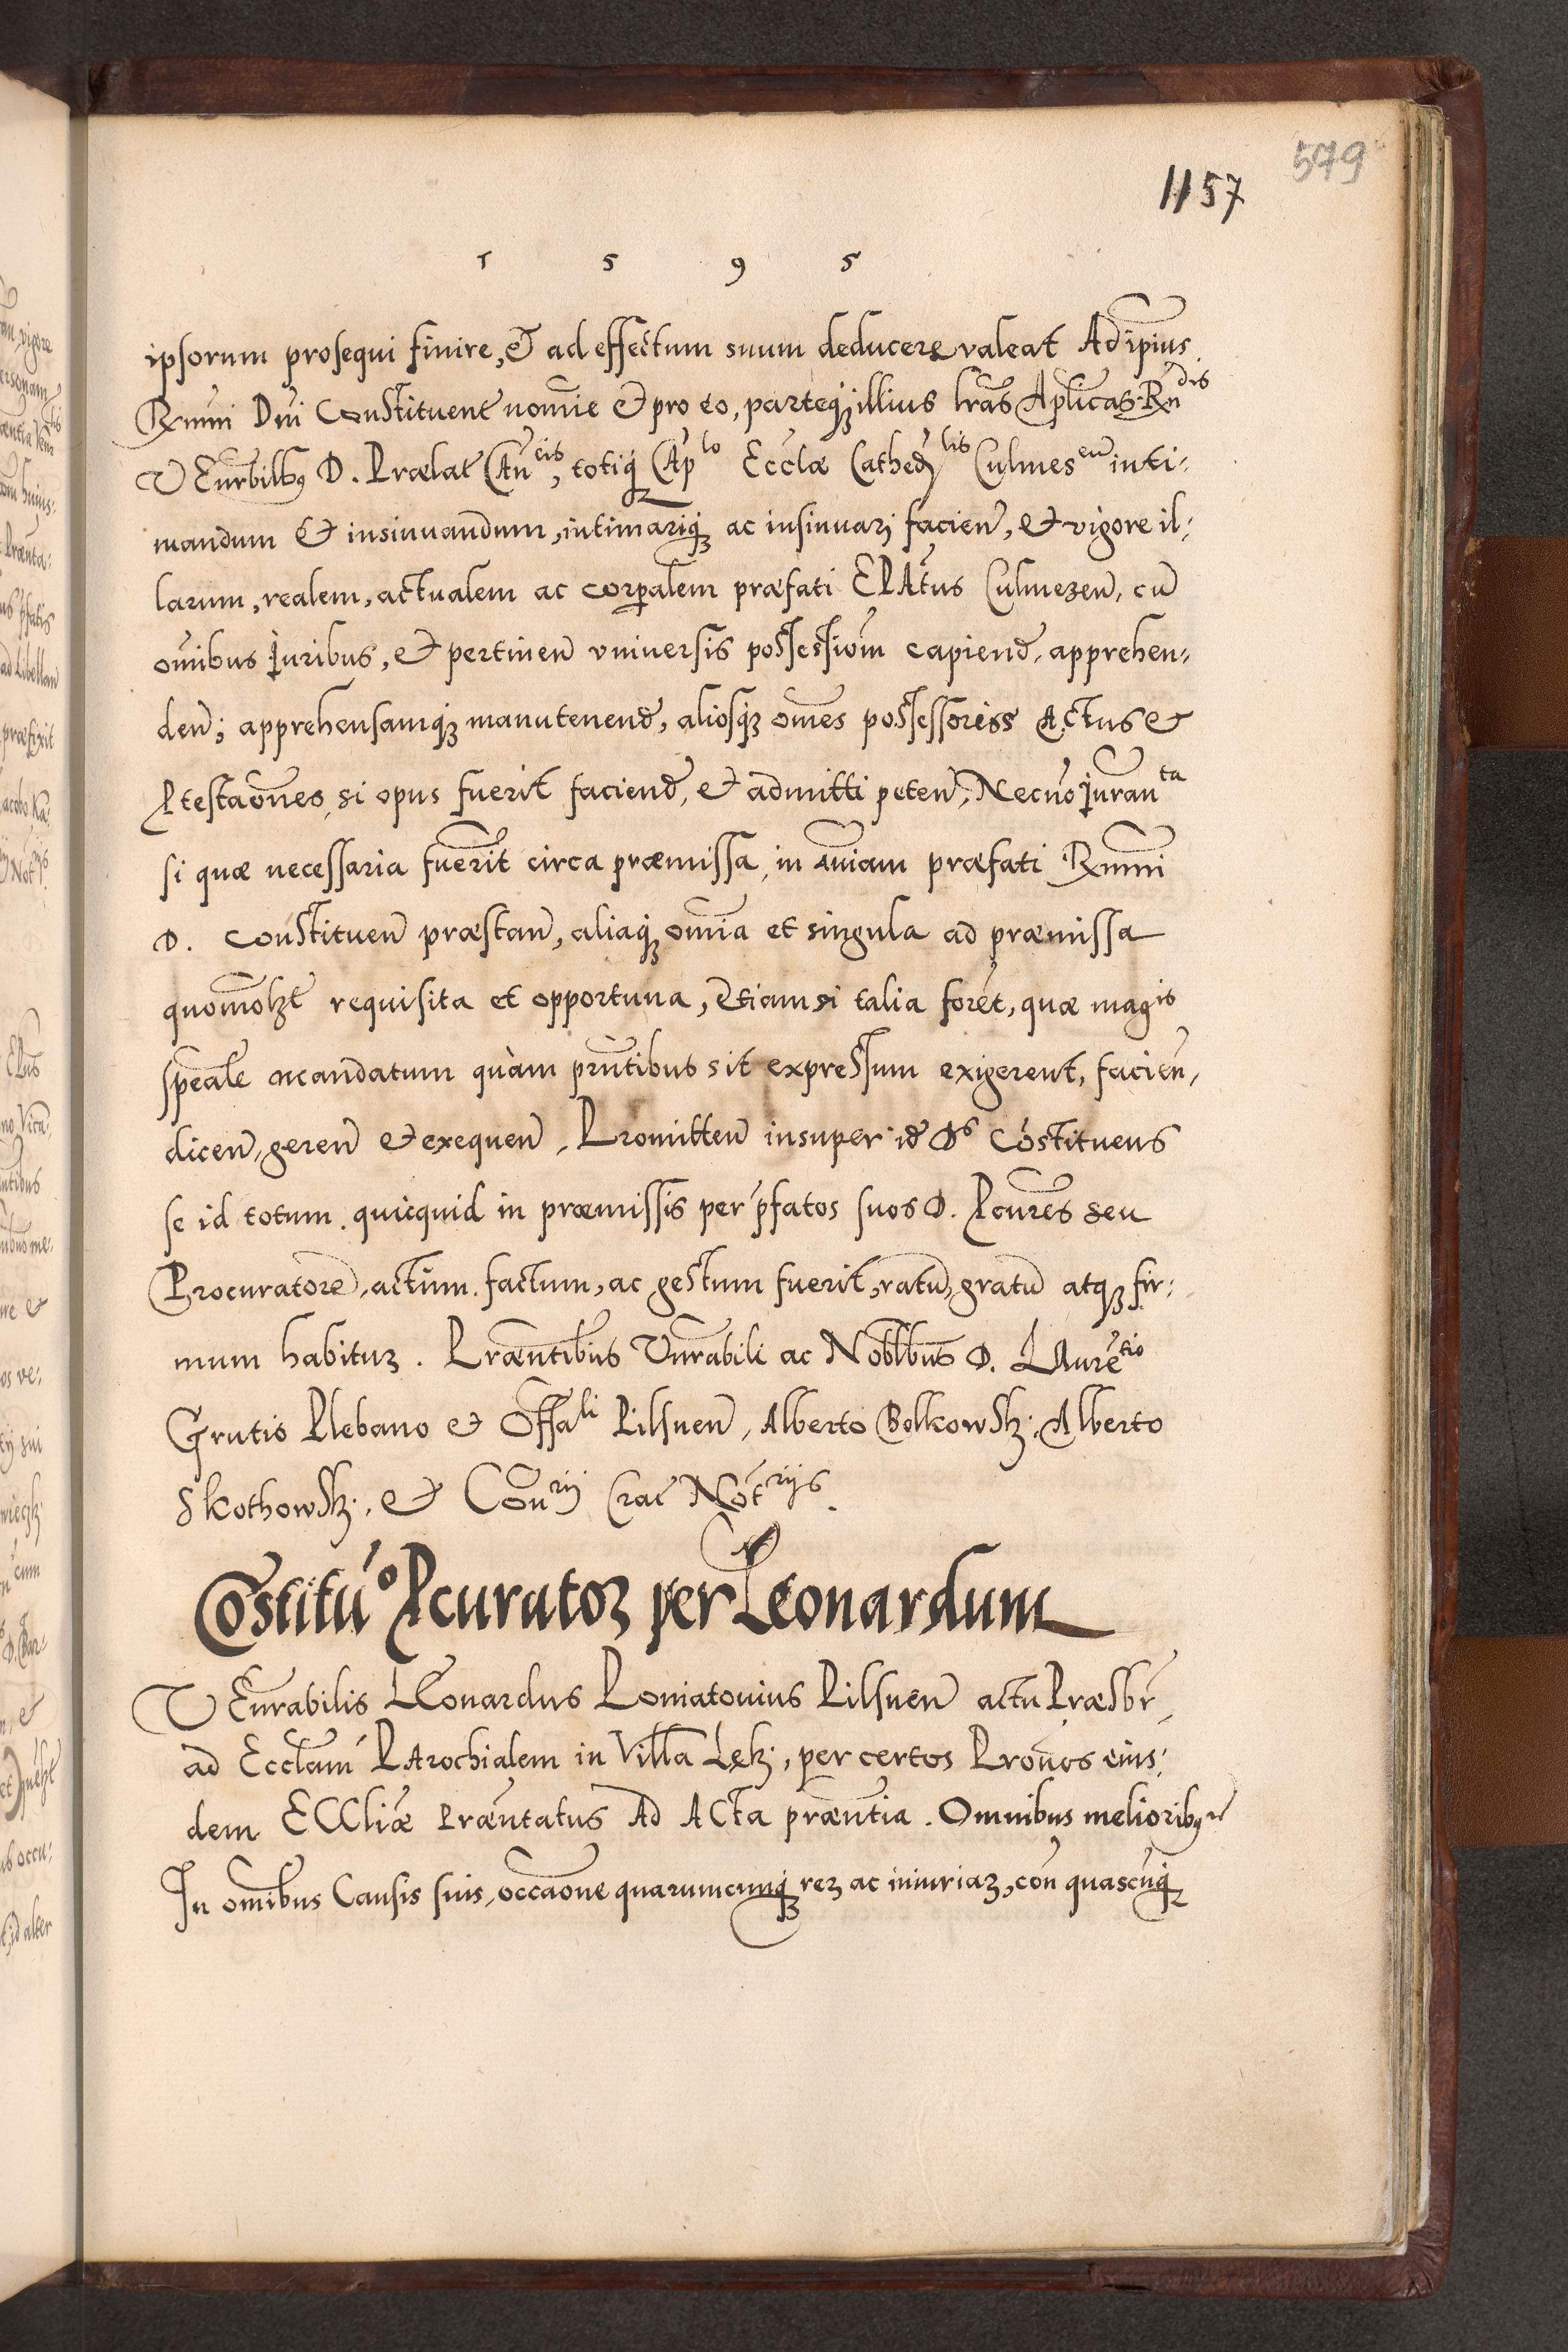 579
1157
1 5 9 5
ipsorum prosequi finire, et ad effectum suum deducere valeat Ad ip̃ius
Rmm̃i Dñi Constituent̃ nomĩe & pro eo, parteq̨ illius lr̃as Apl̃icas Rñdis
VEnrbĩlbꝰ D. Prælat̃ CAñcis, totiq̨ CAp̃lo Eccl̃æ Catheđlis Culmeseñ inti-
mandum & insinuandum, intimariq̨ ac insinuarj facień, et vigore il-
larum, realem, actualem ac corꝑalem præfati EPAt̃us Culmezeñ, cũ
om̃ibus juribus, et pertineñ vniuersis possessiom̃ capienđ, apprehen-
deñ; apprehensamq̨ manutenenđ, aliosq̨ om̃es possessorioss Actus &
Ptestaõnes, si opus fuerit faciend̃, et admitti peteñ, Necnõ juranta
si quæ necessaria fuer̃it circa præmissa, in aĩam præfati Rmm̃i
D. Constitueñ præstañ, aliaq̨ om̃ia et singula ad præmissa
quomolꝫt̃ requisita et opportuna, Etiamsi talia forẽt, quæ magis
speãle mandatum quàm pñtibus sit expressum exigerent, facień,
diceñ, gereñ et exequeñ, Promitteñ insuper id̃ Ds Cõstituens
se id totum quicquid in præmissis per p̃fatos suos D. Pcurẽs seu
Procuratorẽ, actũm factum, ac gestum fuerit, ratũ, gratũ atqꝫ fir-
mum habituꝫ. Præñtibus Vnrãbili ac Nobl̃bus D. LAurẽtio
Grutio Plebano et Offali Pilsneñ, Alberto Bolkowskꝫ: Alberto
Skothowskꝫ: & Coñrij Crac̃ Nõtrijs.
Cõstitũo Pcuratoꝫ per Leonardum
VEnrãbilis LEonardus Poniatouius Pilsneñ actu Præsbr̃,
ad Eccl̃am PArochialem in Villa Lękꝫ, per certos Proũos eius-
dem ECCl̃iæ Præñtatus Ad ACta præñtia. Omnibus melioribꝰ
In om̃ibus Causis suis, occaõne quarumcunq̨ reꝫ ac iniuriaꝫ, coñ quascũq̨